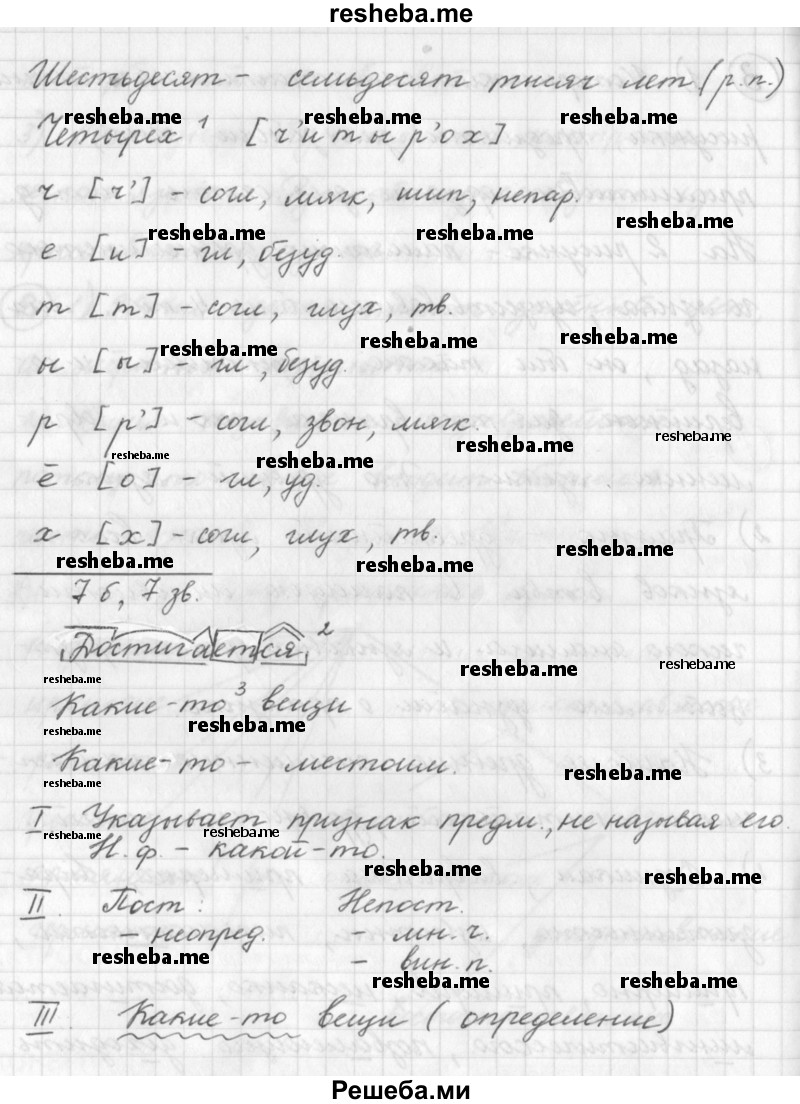 resheba.me
Шестьдесят - семьдесят тысяч лет (р.п.)
resheba.me resheba.me resheba.me
Четырех¹ [ч'итыр'ох]
ч [ч'] - согл, мягк, шип, непар.
resheba.me resheba.me resheba.me
е [и] - гл, безуд.
т [т] - согл, глух, тв.
resheba.me resheba.me resheba.me
ы [ы] - гл, безуд.
р [р'] - согл, звон, мягк.
resheba.me resheba.me resheba.me resheba.me
ё [о] - гл, уд.
х [х] - согл, глух, тв.
resheba.me resheba.me resheba.me
7 б, 7 зв.
Достигается²
resheba.me resheba.me resheba.me
Какие-то³ вещи
resheba.me resheba.me
Какие-то - местоим.
resheba.me resheba.me
I Указывает признак предм., не называя его.
resheba.me resheba.me
Н.ф. - какой-то.
resheba.me resheba.me
II. Пост: Непост.
- неопред. - мн. ч.
resheba.me - вин. п.
resheba.me resheba.me
III. Какие-то вещи (определение)
Решеба.ми